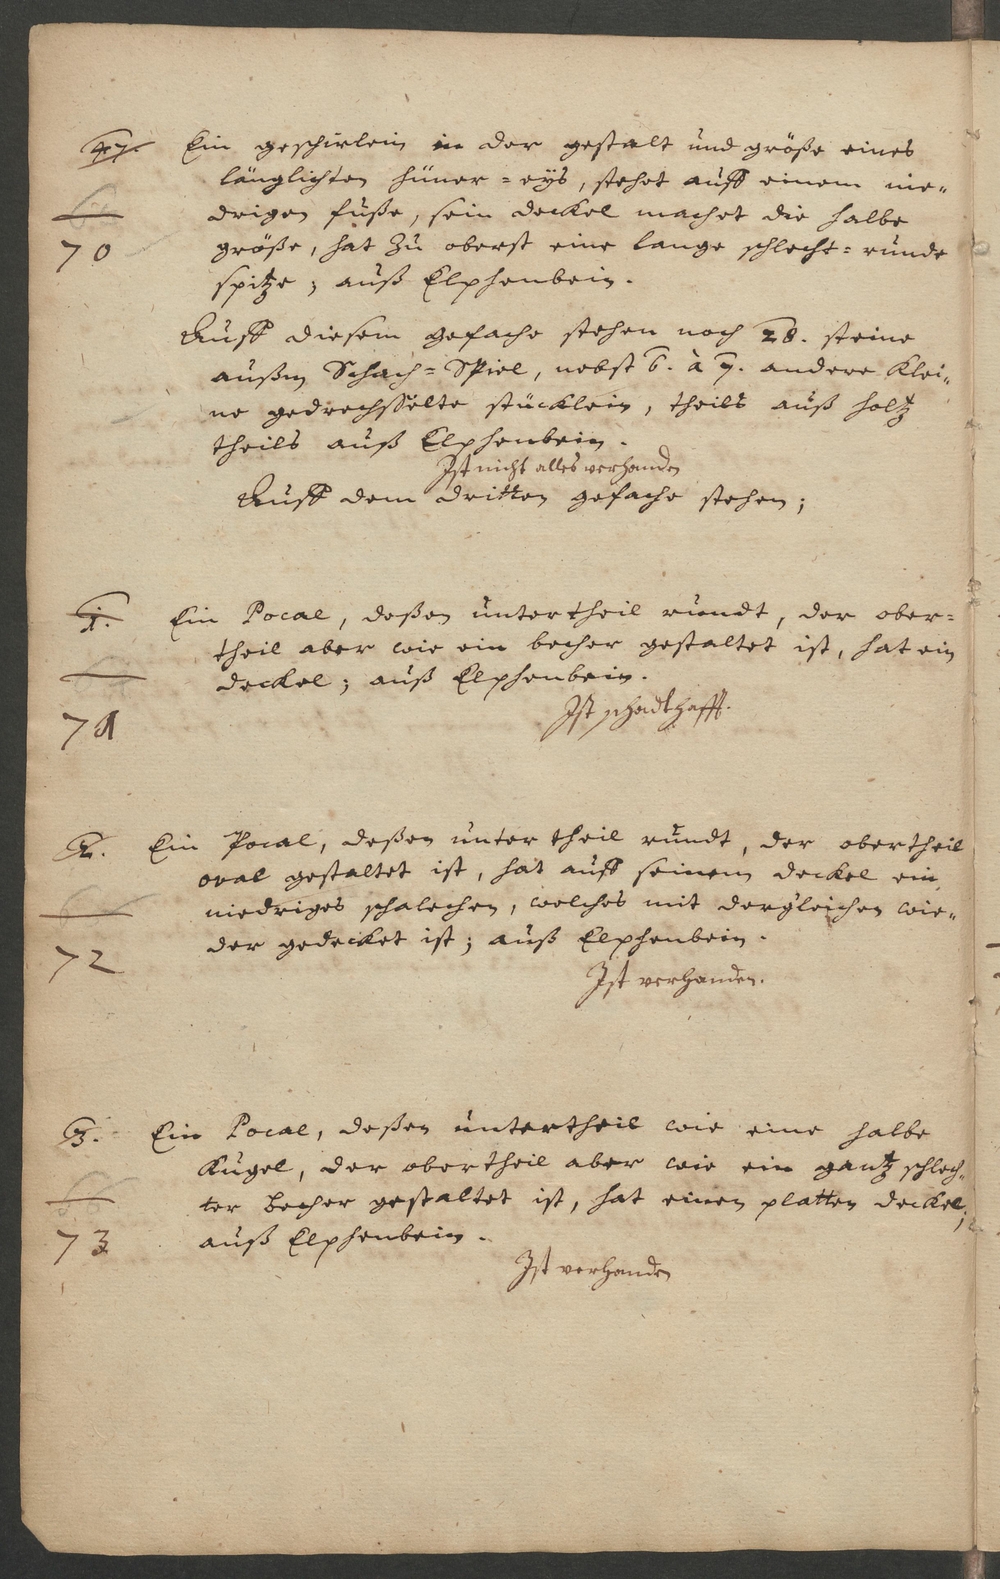 47. Ein geschirlein in der gestalt und größe eines
länglichten hüner=eÿs, stehet auff einem nie„
drigen fuße, sein deckel machet die halbe
70 größe, hat zu oberst eine lange schlecht=runde
spitze; auß Elphenbein.
Auff diesem gefache stehen noch 28. steine
außm Schach=Spiel, nebst 6. à 7. andere klei„
ne gedrechsselte stücklein, theils auß holtz
theils auß Elphenbein.
Ist nicht alles verhanden
Auff dem dritten gefache stehen;
1. Ein Pocal, deßen untertheil rundt, der ober=
theil aber wie ein becher gestaltet ist, hat ein
deckel; auß Elphenbein.
71 Ist schadthafft.
2. Ein Pocal, deßen untertheil rundt, der obertheil
oval gestaltet ist, hat auff seinem deckel ein
niedriges schalechen, welches mit dergleichen wie„
72 der gedecket ist; auß Elphenbein.
Ist verhanden.
3. Ein Pocal, deßen untertheil wie eine halbe
Kugel, der obertheil aber wie ein gantz schlech„
ter becher gestaltet ist, hat einen platten deckel;
73 auß Elphenbein.
Ist verhanden